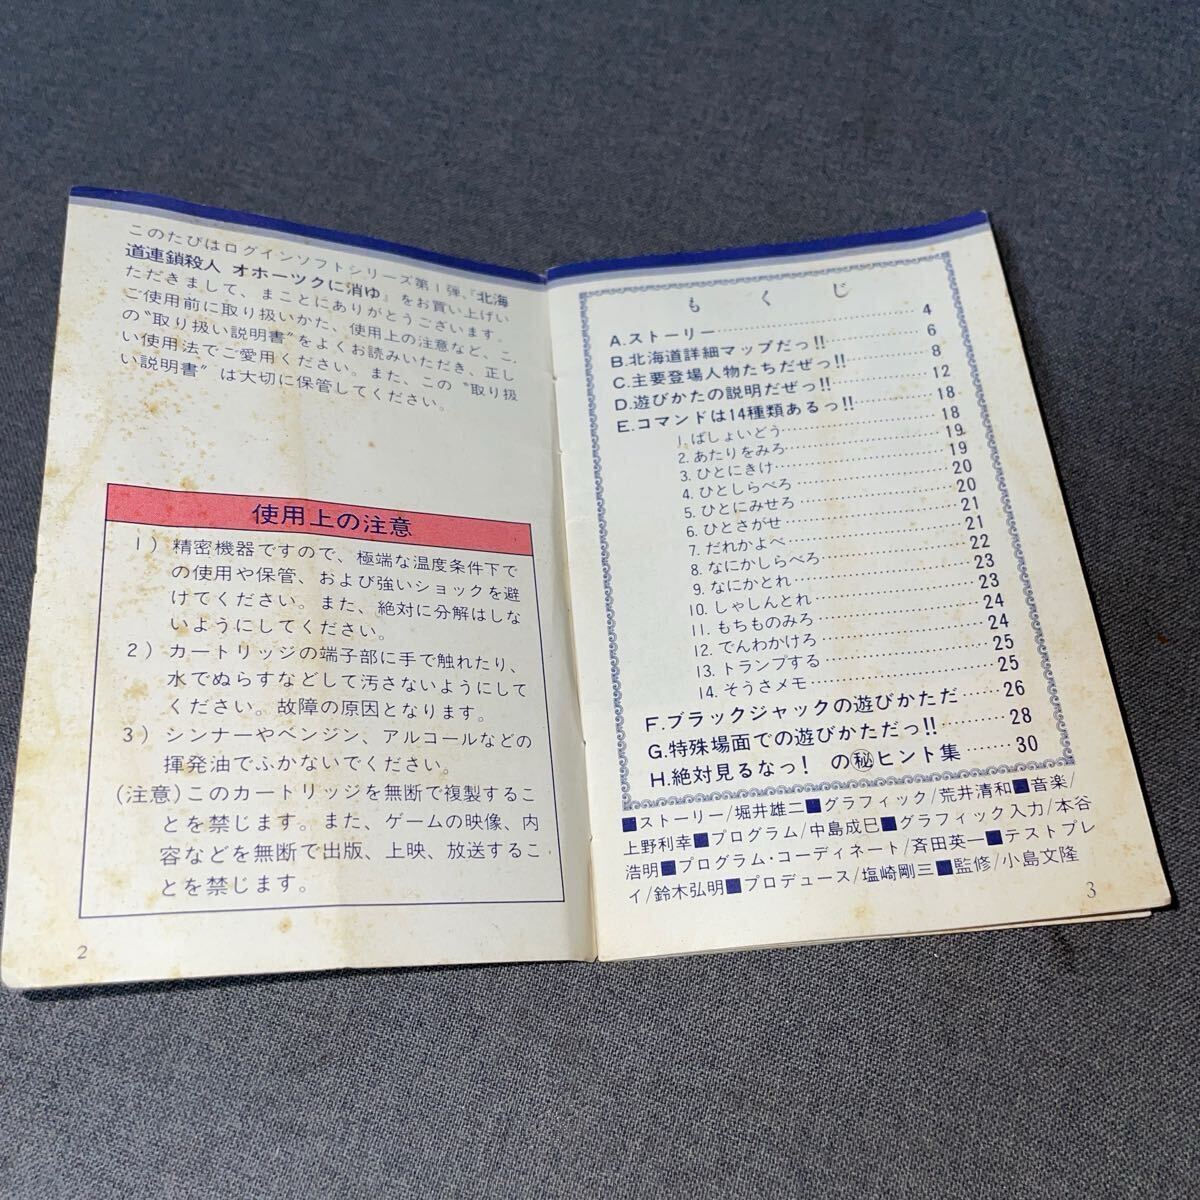 このたびはログインソフトシリーズ第1弾、『北海
道連鎖殺人 オホーツクに消ゆ』をお買い上げい
ただきまして、まことにありがとうございます。
ご使用前に取り扱いかた、使用上の注意など、こ
の〝取り扱い説明書〟をよくお読みいただき、正し
い使用法でご愛用ください。また、この〝取り扱
い説明書〟は大切に保管してください。
使用上の注意
1)精密機器ですので、極端な温度条件下で
の使用や保管、および強いショックを避
けてください。また、絶対に分解はしな
いようにしてください。
2)カートリッジの端子部に手で触れたり、
水でぬらすなどして汚さないようにして
ください。故障の原因となります。
3)シンナーやベンジン、アルコールなどの
揮発油でふかないでください。
(注意)このカートリッジを無断で複製するこ
とを禁じます。また、ゲームの映像、内
容などを無断で出版、上映、放送するこ
とを禁じます。
2
もくじ
A.ストーリー……………………4
B.北海道詳細マップだっ!!…………6
C.主要登場人物たちだぜっ!!…………8
D.遊びかたの説明だぜっ!!…………12
E.コマンドは14種類あるっ!!…………18
1.ばしょいどう……………………18
2.あたりをみろ……………………19
3.ひとにきけ……………………19
4.ひとしらべろ……………………20
5.ひとにみせろ……………………20
6.ひとさがせ……………………21
7.だれかよべ……………………21
8.なにかしらべろ……………………22
9.なにかとれ……………………23
10.しゃしんとれ……………………23
11.もちものみろ……………………24
12.でんわかけろ……………………24
13.トランプする……………………25
14.そうさメモ……………………25
F.ブラックジャックの遊びかただ……26
G.特殊場面での遊びかただっ!!………28
H.絶対見るなっ! の㊙ヒント集……30
■ストーリー/堀井雄二■グラフィック/荒井清和■音楽/
上野利幸■プログラム/中島成巳■グラフィック入力/本谷
浩明■プログラム・コーディネート/斉田英一■テストプレ
イ/鈴木弘明■プロデュース/塩崎剛三■監修/小島文隆
3